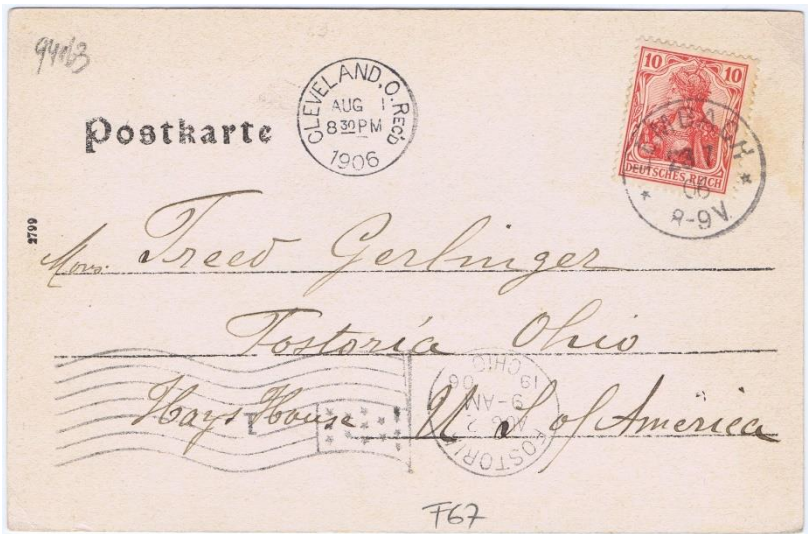 94163
CLEVELAND, O. REC'D
AUG 1
8 30 PM
1906
10 10
DEUTSCHES REICH
Postkarte
06
8-9V
2799
Mons. Freed Gerlinger
Fostoria Ohio
Hays House U S of America
FOSTORIA
AUG 2
9-AM
1906
OHIO
F67